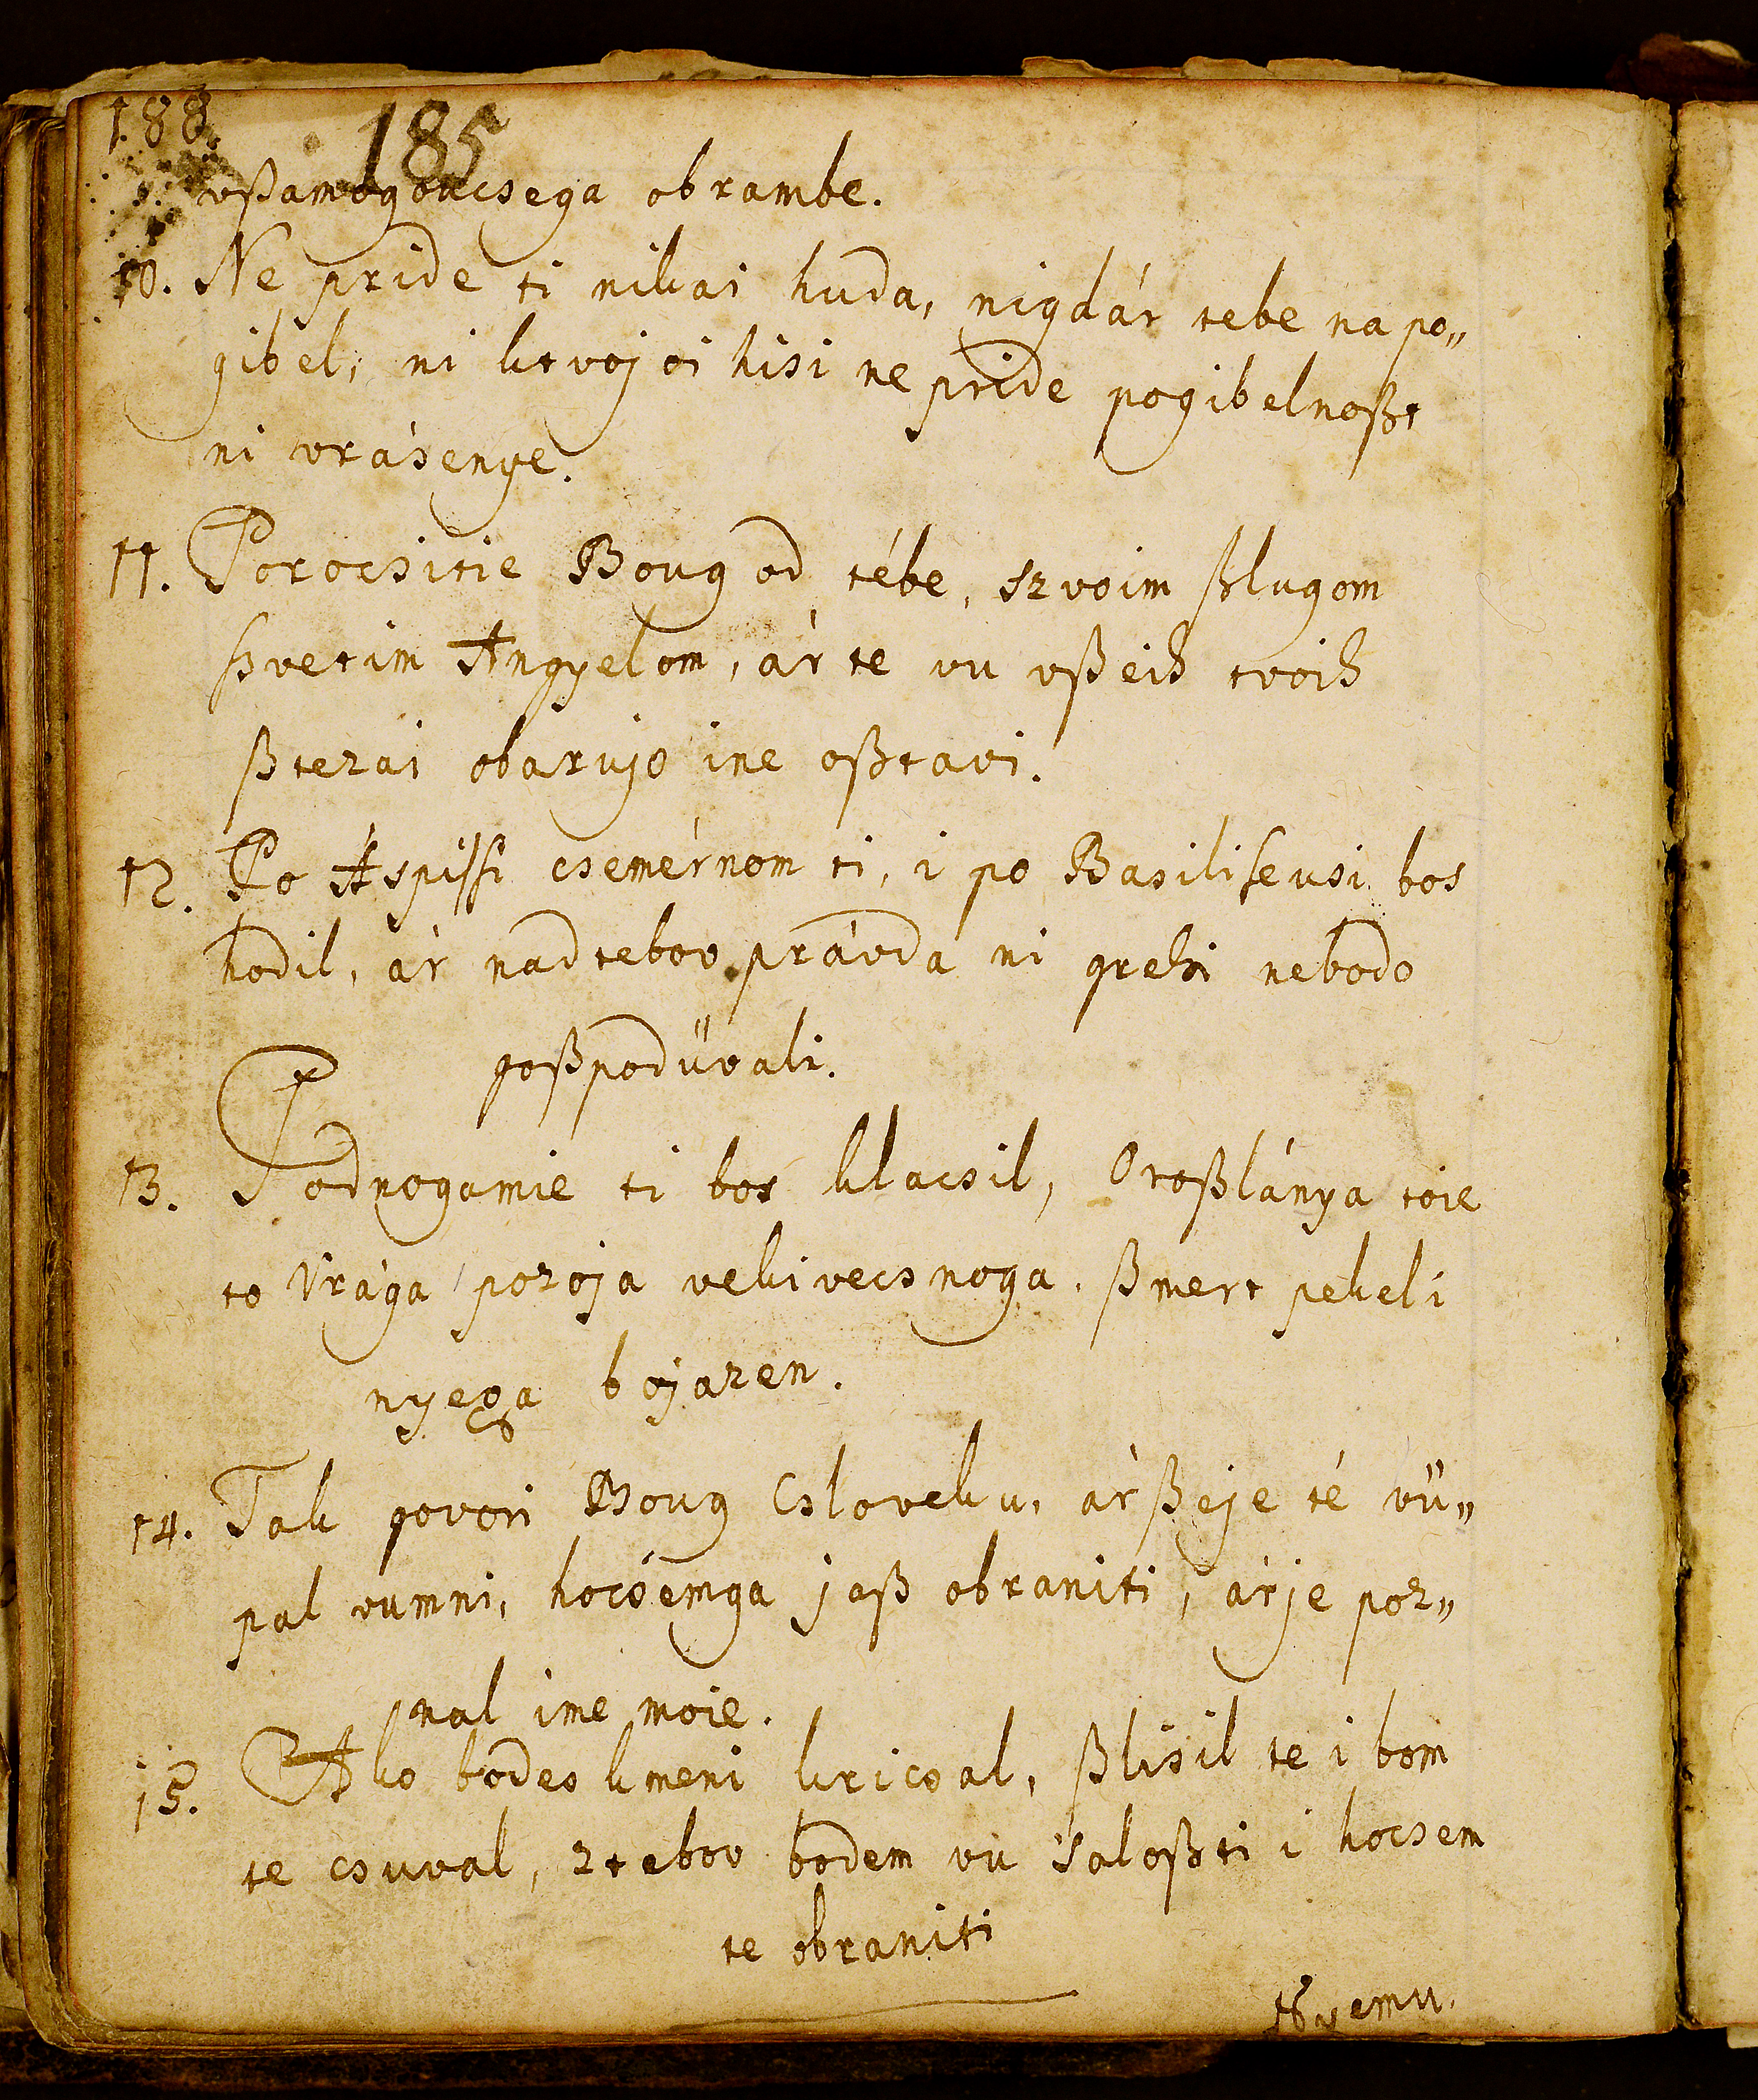 188.
185
vßamogoucsega obrambe.
10. Ne pride ti nikai huda, nigdár tebe na po„
gibel, ni ktvojoi hisi ne pride pogibelnoßt
ni vrásenye.
11. Porocsitie Boug od tébe, szvoim ßlugom
ßvetim Angyelom, ár te vu vßeih tvoih
ßtezai obarujo ine oßtavi.
12. Po Aspißi csemérnom ti, i po Basiliscusi bos
hodil, ár nad tebov právda ni grehi nebodo
goßpodüvali.
13. Podnogamie ti bos klacsil, Oroßlánya toie
to Vrága pozoja vekivecsnoga, ßmert pekel i
nyega bojazen.
14. Tak govori Boug Csloveku, ár ßeje té vü„
pal vumni, hocsemga jaß obraniti, árje poz„
nal ime moie.
15. Ako bodes kmeni kricsal, ßlisil te i bom
te csuval, ztebov bodem vu saloßti i hocsem
te obraniti
Nyemu.